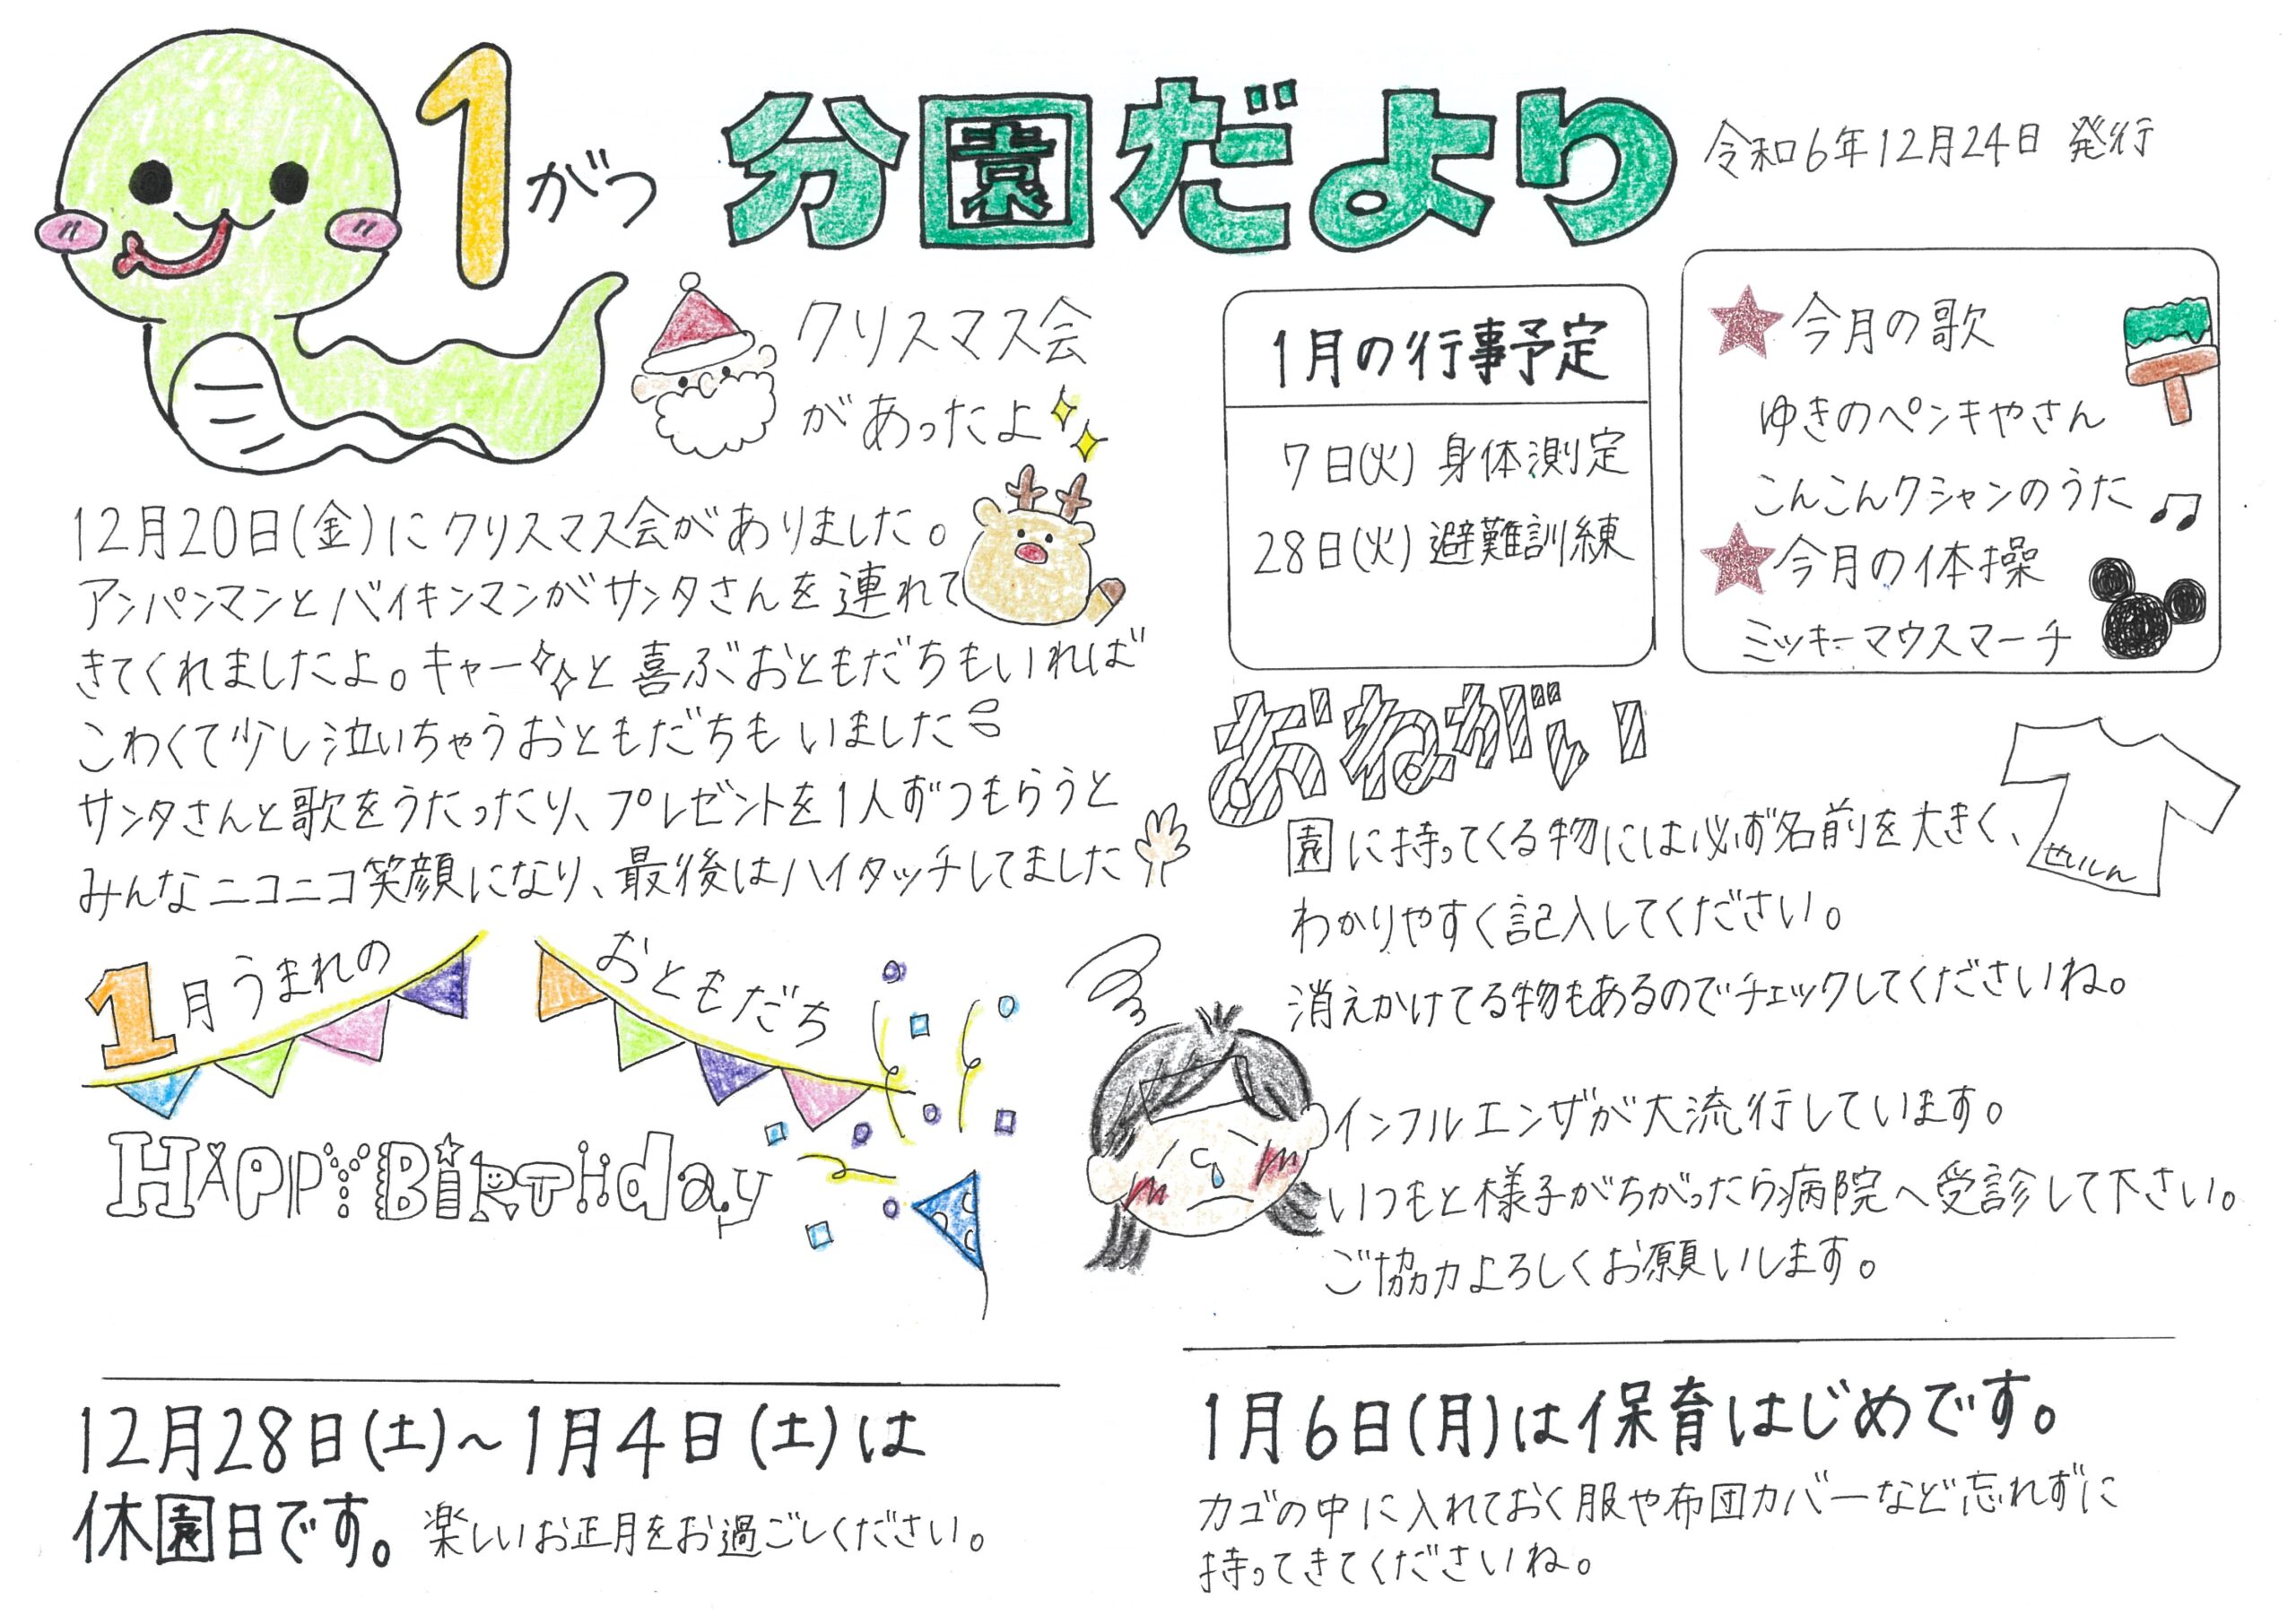 1がつ 分園だより
令和6年12月24日 発行
クリスマス会
があったよ
12月20日(金)にクリスマス会がありました。
アンパンマンとバイキンマンがサンタさんを連れて
きてくれましたよ。キャーと喜ぶおともだちもいれば
こわくて少し泣いちゃうおともだちもいました
サンタさんと歌をうたったり、プレゼントを1人ずつもらうと
みんなニコニコ笑顔になり、最後はハイタッチしてました
1月うまれの おともだち
HAPPY BiRTHday
12月28日(土)~1月4日(土)は
休園日です。楽しいお正月をお過ごしください。
1月の行事予定
7日(火) 身体測定
28日(火) 避難訓練
★今月の歌
ゆきのペンキやさん
こんこんクシャンのうた♫
★今月の体操
ミッキーマウスマーチ
おねがい
園に持ってくる物には必ず名前を大きく、
わかりやすく記入してください。
消えかけてる物もあるのでチェックしてくださいね。
せいしん
インフルエンザが大流行しています。
いつもと様子がちがったら病院へ受診して下さい。
ご協力よろしくお願いします。
1月6日(月)は保育はじめです。
カゴの中に入れておく服や布団カバーなど忘れずに
持ってきてくださいね。